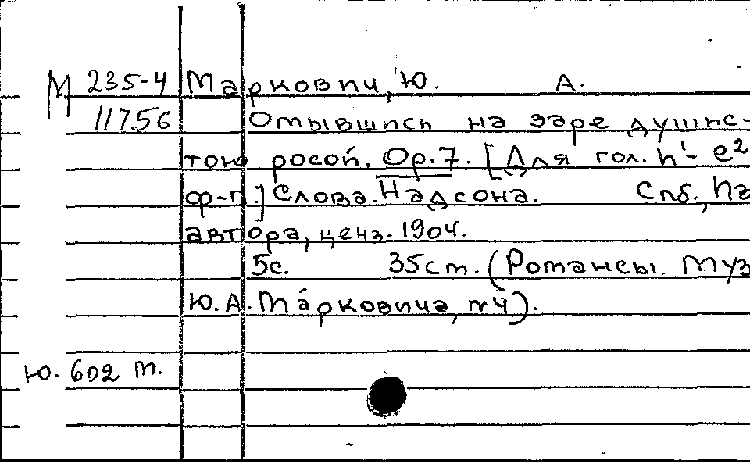 М 235-4 Маркович, Ю. А.
11756 Омывшись на заре душис-
тою росой. Ор.7. [Для гол. h¹- e²
ф-п.] Слова Надсона. Спб., На
автора, ценз. 1904.
5с. 35см. (Романсы. Муз
Ю.А. Марковича, №4).
Ю. 602 т.